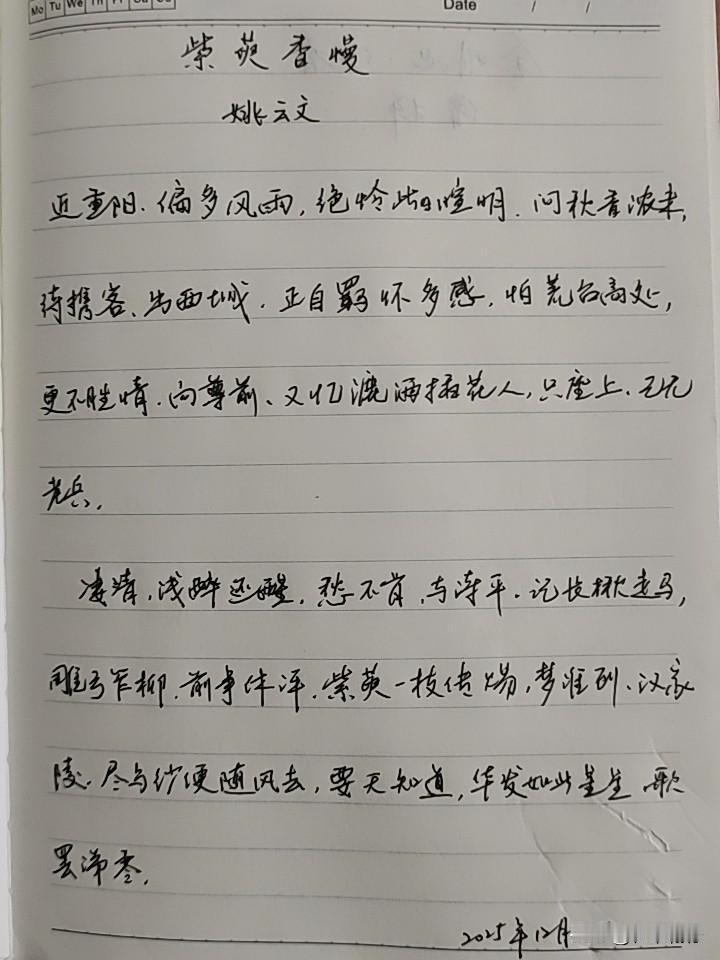 Mo Tu We Th Fr Sa Su
Date / /
紫萸香慢
姚云文
近重阳、偏多风雨,绝怜此日暄明。问秋香浓未,
待携客、出西城。正自羁怀多感,怕荒台高处,
更不胜情。向尊前、又忆漉酒插花人,只座上、已无
老兵。
凄清,浅醉还醒,愁不肯、与诗平。记长楸走马,
雕弓笮柳,前事休评。紫萸一枝传赐,梦谁到、汉家
陵。尽乌纱便随风去,要天知道,华发如此星星,歌
罢涕零。
2025年12月